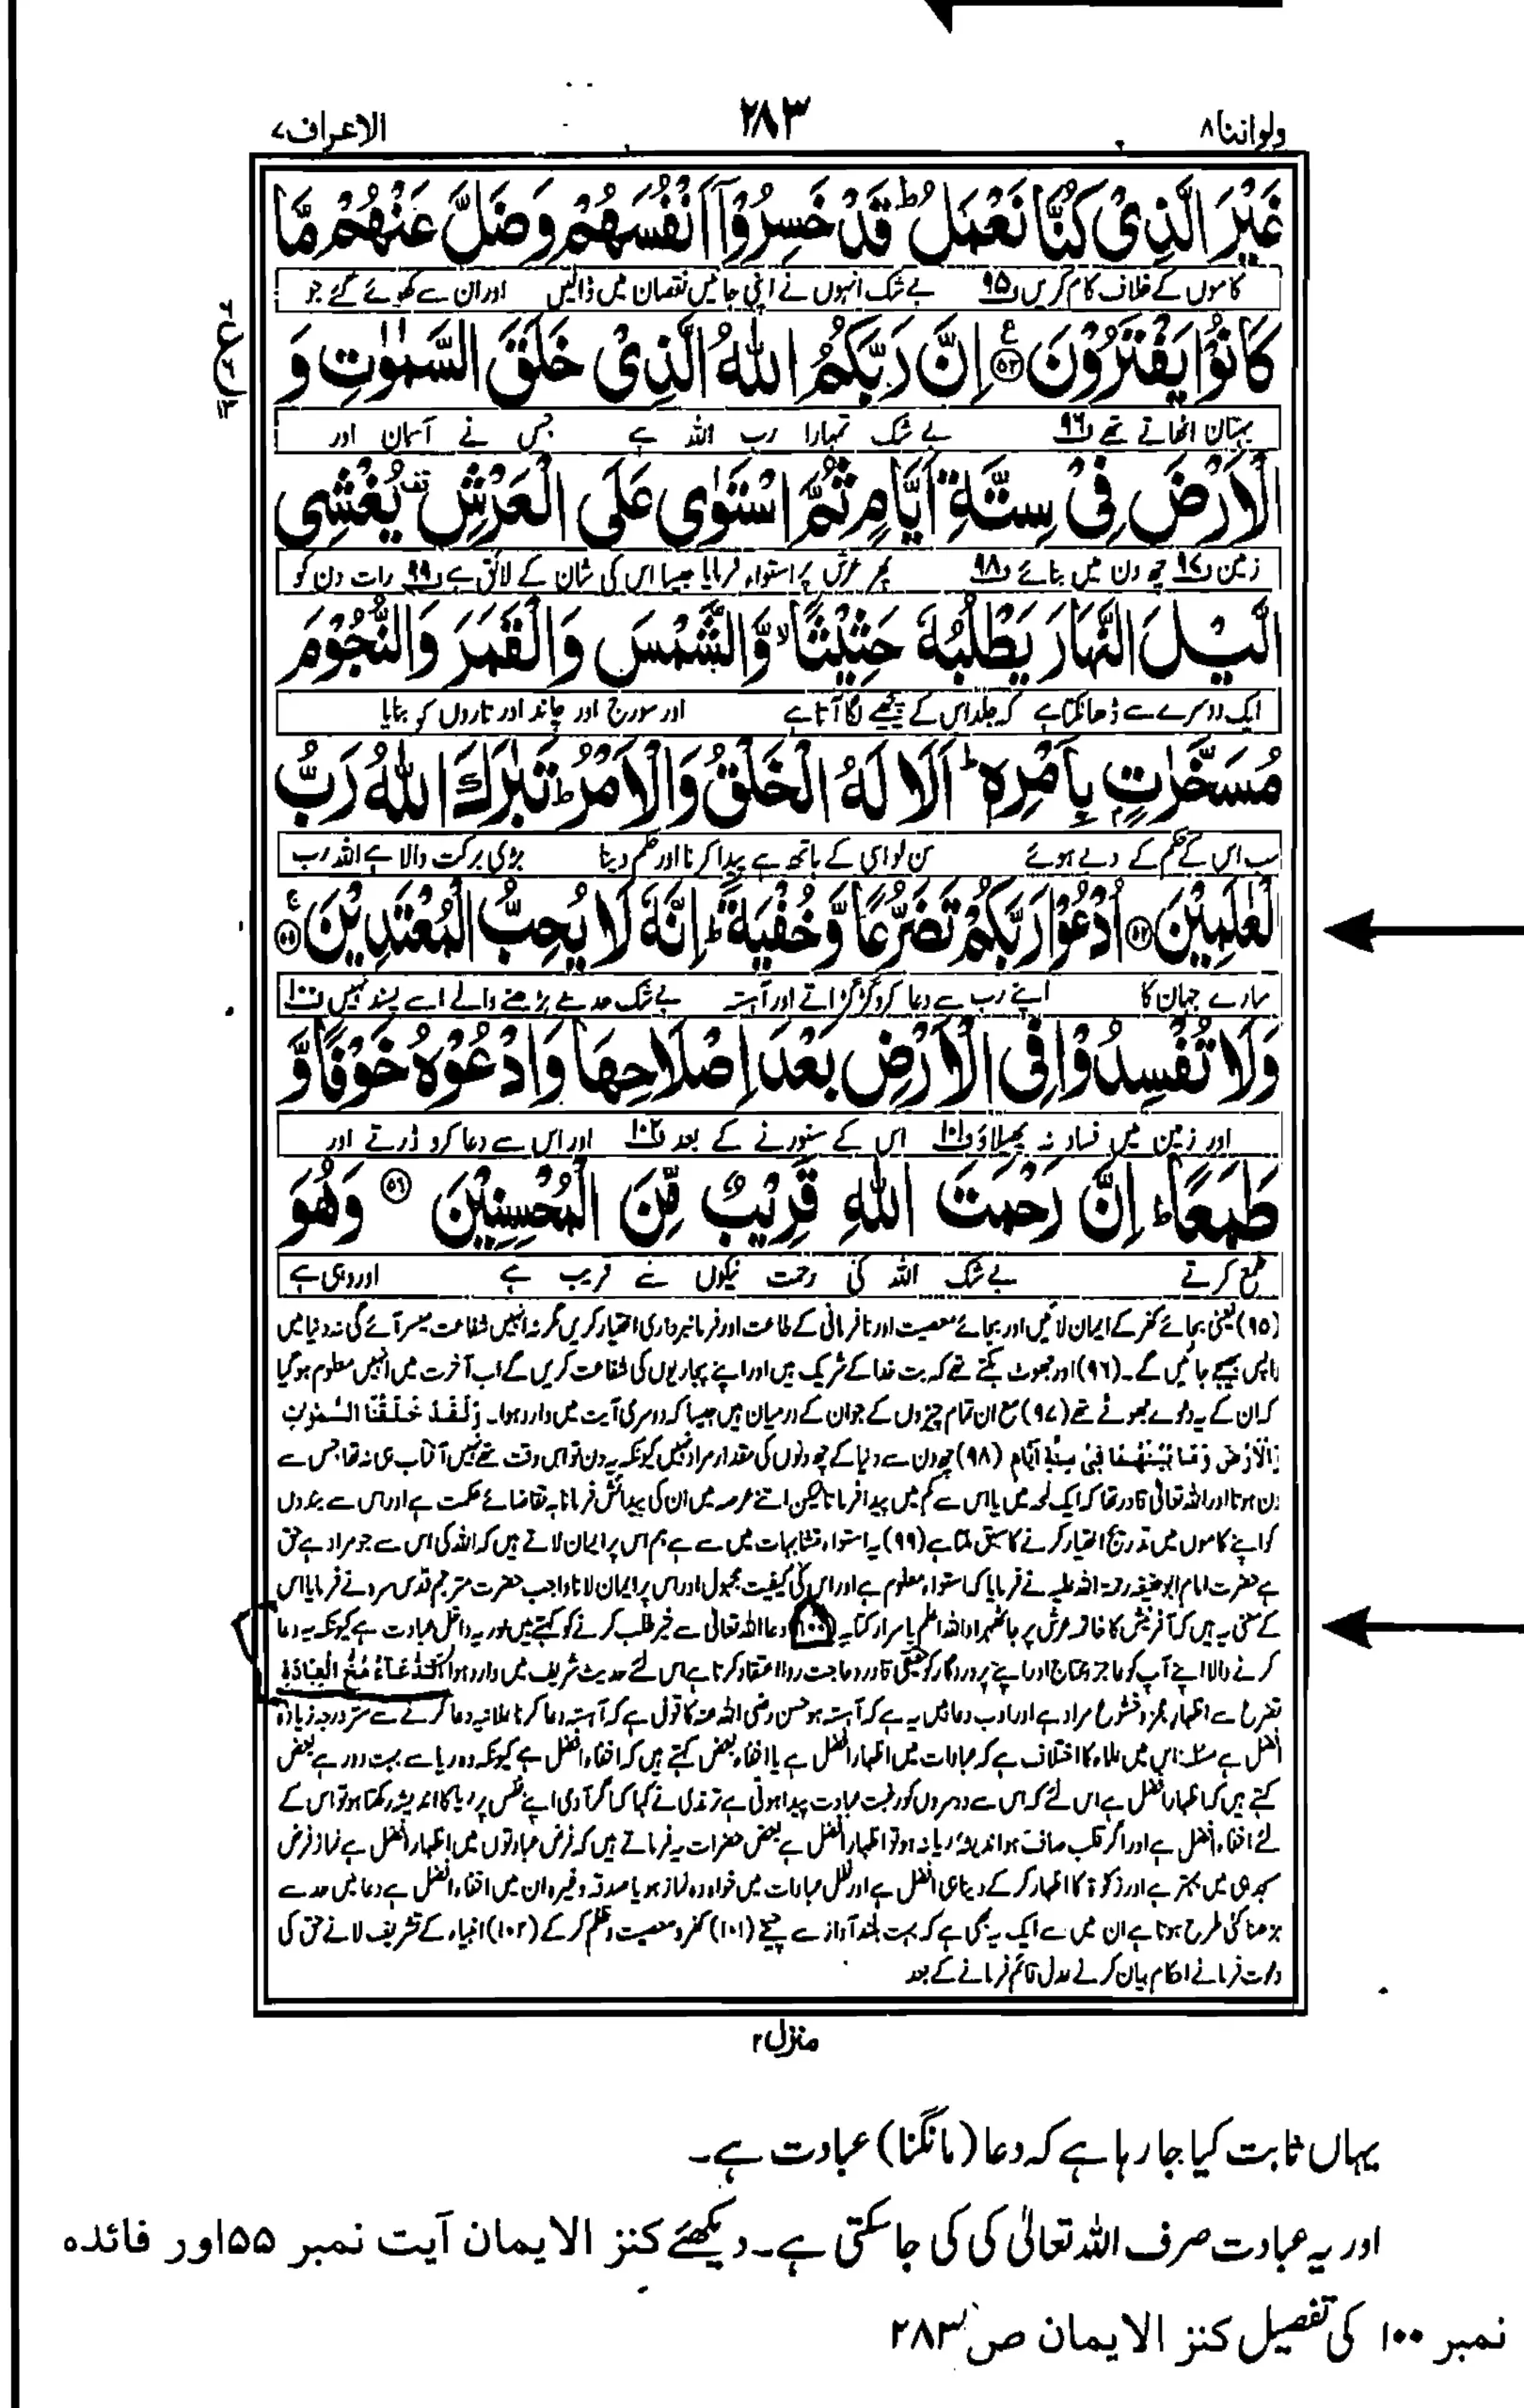 ولواننا۸ ۲۸۳ الاعراف۷
غَيْرَ الَّذِىْ كُنَّا نَعْمَلُ ؕ قَدْ خَسِرُوْۤا اَنْفُسَهُمْ وَضَلَّ عَنْهُمْ مَّا
کاموں کے خلاف کام کریں ف۹۵ بے شک انہوں نے اپنی جانیں نقصان میں ڈالیں اور ان سے کھوئے گئے جو
كَانُوْا يَفْتَرُوْنَ ﴿۵۳﴾ اِنَّ رَبَّكُمُ اللّٰهُ الَّذِىْ خَلَقَ السَّمٰوٰتِ وَ
بہتان اٹھاتے تھے ف۹۶ بے شک تمہارا رب اللہ ہے جس نے آسمان اور
الْاَرْضَ فِىْ سِتَّةِ اَيَّامٍ ثُمَّ اسْتَوٰى عَلَى الْعَرْشِ يُغْشِى
زمین ف۹۷ چھ دن میں بنائے ف۹۸ پھر عرش پر استواء فرمایا جیسا اس کی شان کے لائق ہے ف۹۹ رات دن کو
الَّيْلَ النَّهَارَ يَطْلُبُهٗ حَثِيْثًا ۙ وَّالشَّمْسَ وَالْقَمَرَ وَالنُّجُوْمَ
ایک دوسرے سے ڈھانکتا ہے کہ جلد اس کے پیچھے لگا آتا ہے اور سورج اور چاند اور تاروں کو بنایا
مُسَخَّرٰتٍۭ بِاَمْرِهٖ ؕ اَلَا لَهُ الْخَلْقُ وَالْاَمْرُ ؕ تَبٰرَكَ اللّٰهُ رَبُّ
سب اس کے حکم کے دبے ہوئے سن لو اسی کے ہاتھ ہے پیدا کرنا اور حکم دینا بڑی برکت والا ہے اللہ رب
الْعٰلَمِيْنَ ﴿۵۴﴾ اُدْعُوْا رَبَّكُمْ تَضَرُّعًا وَّخُفْيَةً ؕ اِنَّهٗ لَا يُحِبُّ الْمُعْتَدِيْنَ ﴿۵۵﴾
سارے جہان کا اپنے رب سے دعا کرو گڑگڑاتے اور آہستہ بے شک حد سے بڑھنے والے اسے پسند نہیں ف۱۰۰
وَلَا تُفْسِدُوْا فِى الْاَرْضِ بَعْدَ اِصْلَاحِهَا وَادْعُوْهُ خَوْفًا وَّ
اور زمین میں فساد نہ پھیلاؤ ف۱۰۱ اس کے سنورنے کے بعد ف۱۰۲ اور اس سے دعا کرو ڈرتے اور
طَمَعًا ؕ اِنَّ رَحْمَتَ اللّٰهِ قَرِيْبٌ مِّنَ الْمُحْسِنِيْنَ ﴿۵۶﴾ وَهُوَ
طمع کرتے بے شک اللہ کی رحمت نیکوں سے قریب ہے اور وہی ہے
(۹۵) یعنی بجائے کفر کے ایمان لائیں اور بجائے معصیت اور نافرمانی کے طاعت اور فرمانبرداری اختیار کریں مگر نہ انہیں شفاعت میسر آئے گی نہ دنیا میں
واپس بھیجے جائیں گے۔ (۹۶) اور جھوٹ بکتے تھے کہ بت خدا کے شریک ہیں اور اپنے پجاریوں کی شفاعت کریں گے اب آخرت میں انہیں معلوم ہو گیا
کہ ان کے یہ دعوے جھوٹے تھے (۹۷) مع ان تمام چیزوں کے جو ان کے درمیان ہیں جیسا کہ دوسری آیت میں وارد ہوا۔ وَلَقَدْ خَلَقْنَا السَّمٰوٰتِ
وَالْاَرْضَ وَمَا بَيْنَهُمَا فِىْ سِتَّةِ اَيَّامٍ (۹۸) چھ دن سے دنیا کے چھ دنوں کی مقدار مراد نہیں کیونکہ یہ دن تو اس وقت تھے نہیں آفتاب ہی نہ تھا جس سے
دن ہوتا اور اللہ تعالیٰ قادر تھا کہ ایک لمحہ میں یا اس سے کم میں پیدا فرماتا لیکن اتنے عرصہ میں ان کی پیدائش فرمانا بہ تقاضائے حکمت ہے اور اس سے بندوں
کو اپنے کاموں میں تدریج اختیار کرنے کا سبق ملتا ہے (۹۹) یہ استواء متشابہات میں سے ہے ہم اس پر ایمان لاتے ہیں کہ اللہ کی اس سے جو مراد ہے حق
ہے حضرت امام ابو حنیفہ رحمۃ اللہ علیہ نے فرمایا کہ استواء معلوم ہے اور اس کی کیفیت مجہول اور اس پر ایمان لانا واجب حضرت مترجم قدس سرہ نے فرمایا اس
کے معنی یہ ہیں کہ آفرینش کا خاتمہ عرش پر جا ٹھہرا واللہ اعلم باسرار کتابہ (۱۰۰) دعا اللہ تعالیٰ سے خیر طلب کرنے کو کہتے ہیں اور یہ داخل عبادت ہے کیونکہ یہ دعا
کرنے والا اپنے آپ کو عاجز و محتاج اور اپنے پروردگار کو حقیقی قادر و حاجت روا اعتقاد کرتا ہے اسی لئے حدیث شریف میں وارد ہوا اَلدُّعَاءُ مُخُّ الْعِبَادَةِ
تضرع سے اظہار عجز و خشوع مراد ہے اور ادب دعا میں یہ ہے کہ آہستہ ہو حسن رضی اللہ عنہ کا قول ہے کہ آہستہ دعا کرنا علانیہ دعا کرنے سے ستر درجہ زیادہ
افضل ہے مسئلہ: اس میں علماء کا اختلاف ہے کہ عبادات میں اظہار افضل ہے یا اخفاء، بعض کہتے ہیں کہ اخفاء افضل ہے کیونکہ وہ ریا سے بہت دور ہے بعض
کہتے ہیں کہ اظہار افضل ہے اس لئے کہ اس سے دوسروں کو رغبت عبادت پیدا ہوتی ہے ترمذی نے کہا کہ اگر آدمی اپنے نفس پر ریا کا اندیشہ رکھتا ہو تو اس کے
لئے اخفاء افضل ہے اور اگر قلب صاف ہو اندیشۂ ریا نہ ہو تو اظہار افضل ہے بعض حضرات یہ فرماتے ہیں کہ فرض عبادتوں میں اظہار افضل ہے نماز فرض
مسجد ہی میں بہتر ہے اور زکوٰۃ کا اظہار کر کے دینا ہی افضل ہے اور نفل عبادات میں خواہ وہ نماز ہو یا صدقہ وغیرہ ان میں اخفاء افضل ہے دعا میں حد سے
بڑھنا کئی طرح ہوتا ہے ان میں سے ایک یہ بھی ہے کہ بہت بلند آواز سے چیخے (۱۰۱) کفر و معصیت و ظلم کر کے (۱۰۲) انبیاء کے تشریف لانے حق کی
دعوت فرمانے احکام بیان کرنے عدل قائم فرمانے کے بعد
منزل۲
یہاں ثابت کیا جا رہا ہے کہ دعا (مانگنا) عبادت ہے۔
اور یہ عبادت صرف اللہ تعالیٰ کی کی جا سکتی ہے۔ دیکھئے کنز الایمان آیت نمبر ۵۵ اور فائدہ
نمبر ۱۰۰ کی تفصیل کنز الایمان ص ۲۸۳